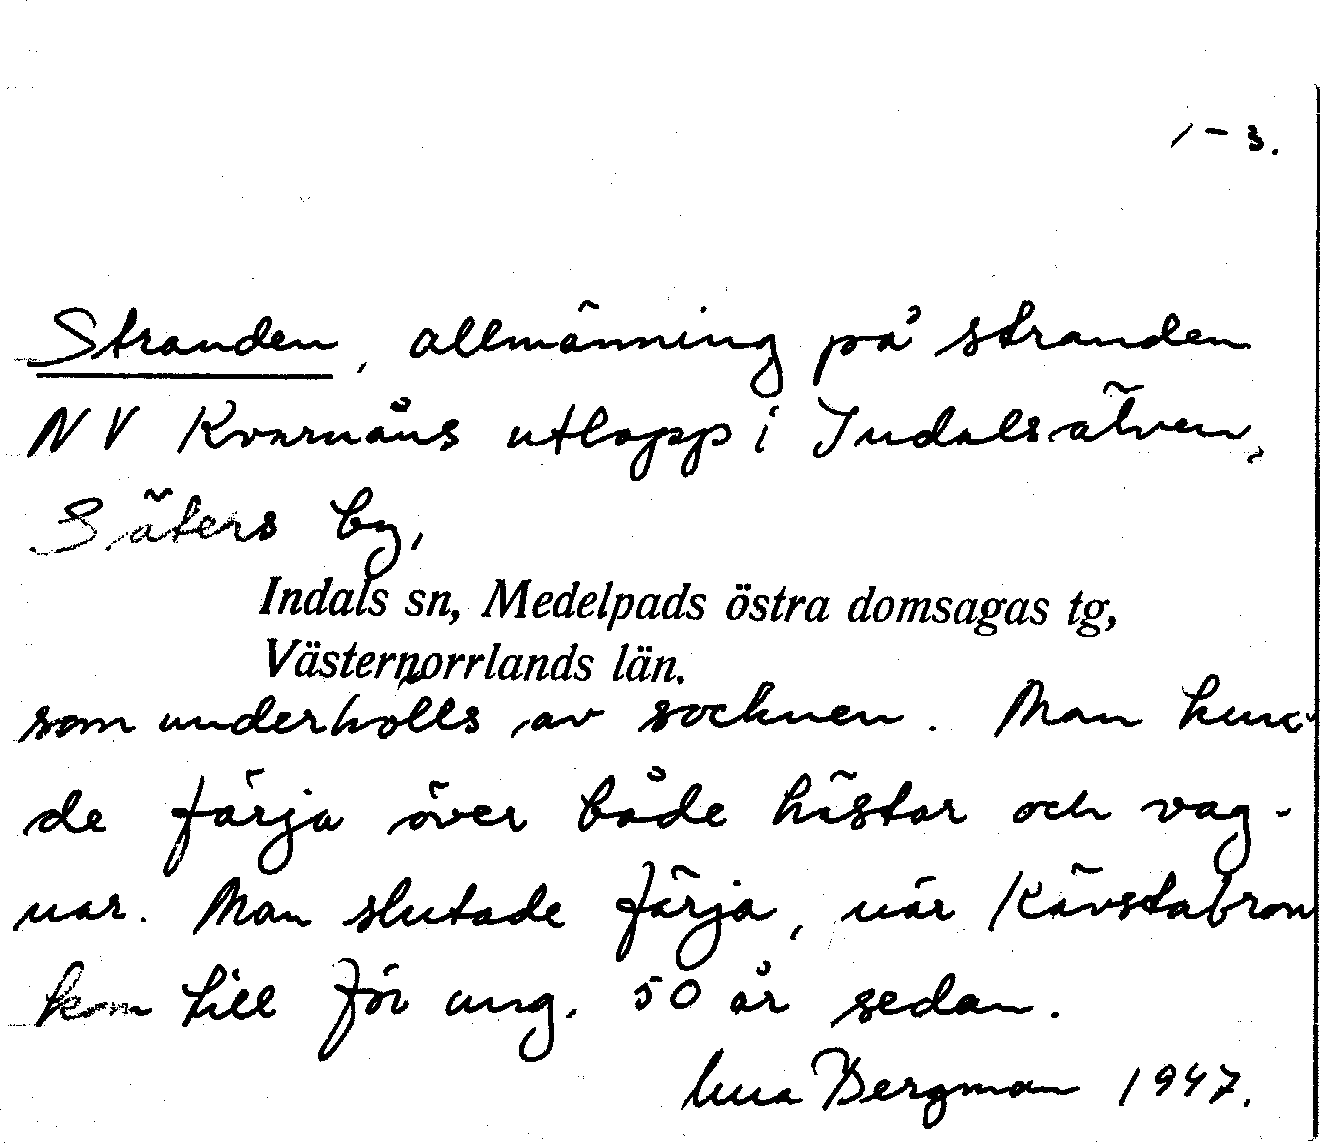 1-3.
Stranden, allmänning på stranden
NV Kvarnåns utlopp i Indalsälven,
Säters by,
Indals sn, Medelpads östra domsagas tg,
Västernorrlands län.
som underhölls av socknen. Man kun-
de färja över både hästar och vag-
nar. Man slutade färja, när Kävstabron
kom till för ung. 50 år sedan.
Bergman 1947.